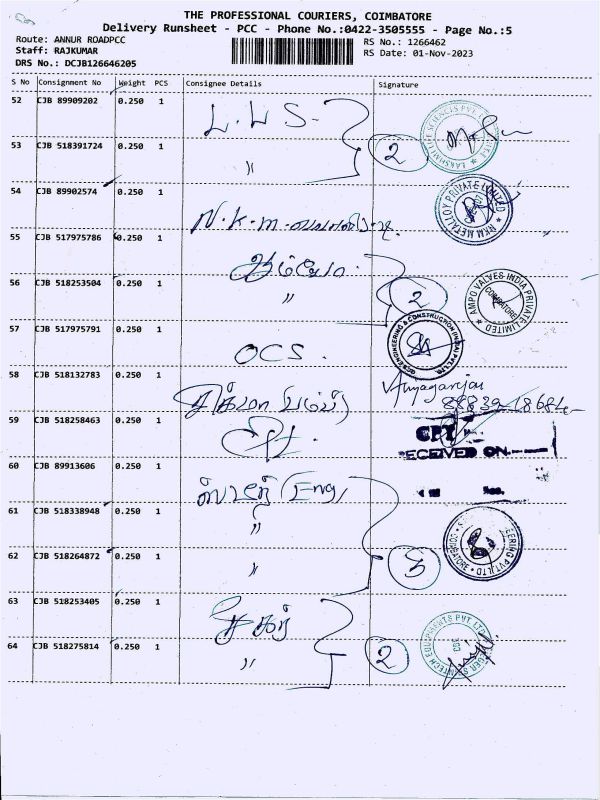 THE PROFESSIONAL COURIERS, COIMBATORE
Delivery Runsheet - PCC - Phone No.:0422-3505555 - Page No.:5
Route: ANNUR ROADPCC
RS No.: 1266462
Staff: RAJKUMAR
RS Date: 01-Nov-2023
DRS No.: DCJB126646205
S No Consignment No Weight PCS Consignee Details Signature
52 CJB 89909202 0.250 1 L.L.S-
53 CJB 518391724 0.250 1 〃 2
54 CJB 89902574 0.250 1 N.K.m
RKM METALLOY PRIVATE LIMITED
55 CJB 517975786 0.250 1
56 CJB 518253504 0.250 1 〃 2
AMPO VALVES INDIA PRIVATE LIMITED COIMBATORE
57 CJB 517975791 0.250 1 OCS.
58 CJB 518132783 0.250 1
88839-18684
59 CJB 518258463 0.250 1
RECEIVED ON
60 CJB 89913606 0.250 1 (Eng)
61 CJB 518338948 0.250 1 〃
62 CJB 518264872 0.250 1 〃 3
63 CJB 518253405 0.250 1 சேகர்
64 CJB 518275814 0.250 1 〃 2